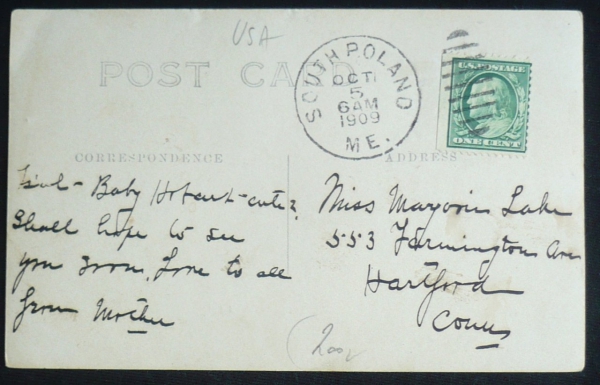 USA
POST CARD
SOUTH POLAND
OCT
5
6 AM
1909
ME.
U.S. POSTAGE
ONE CENT
CORRESPONDENCE
ADDRESS
Isn't - Baby Hobart - cute?
Shall hope to see
you soon, Love to all
from Mother
Miss Marjorie Lake
553 Farmington Ave
Hartford
Conn